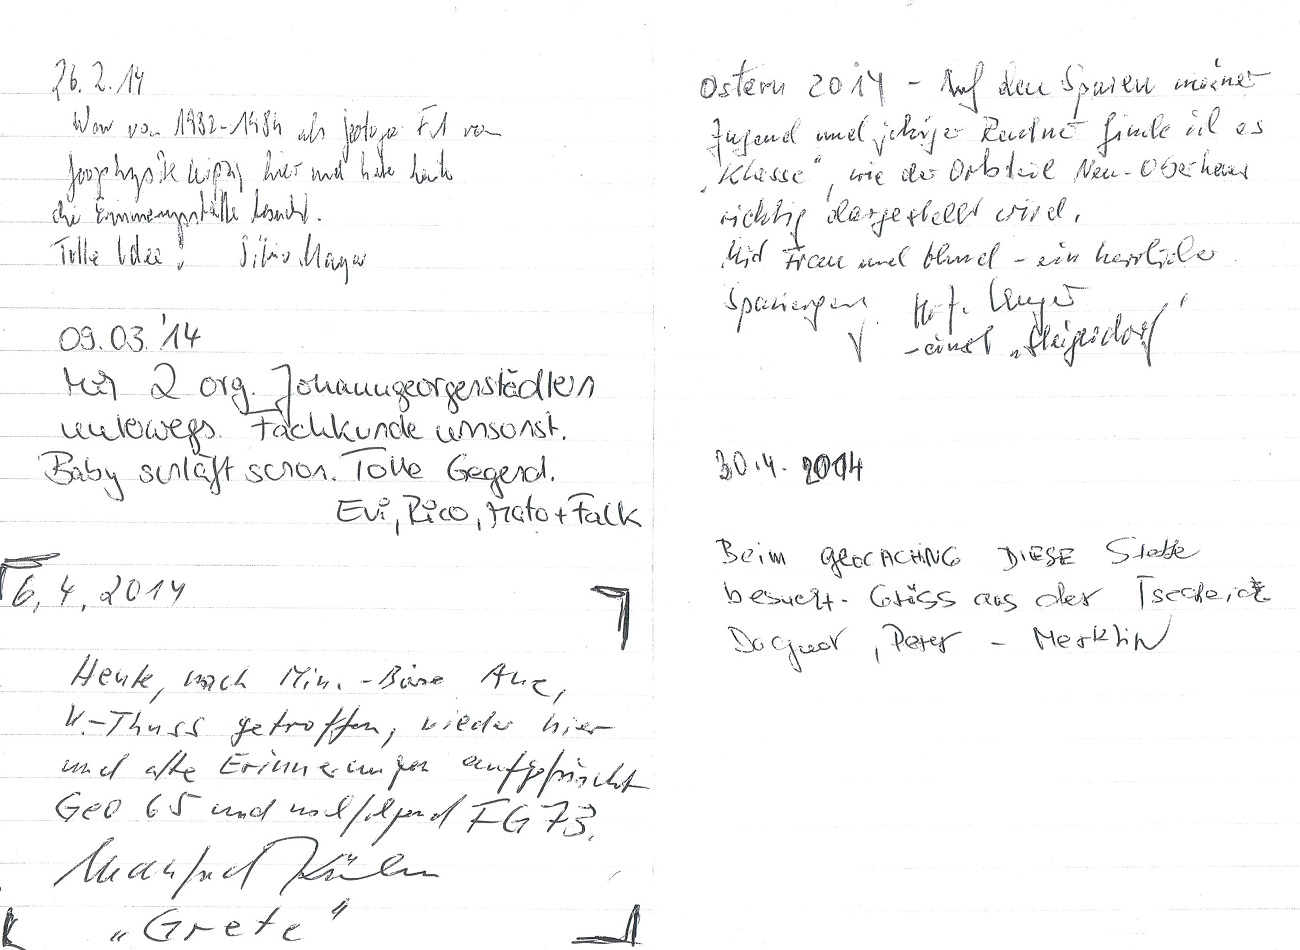 26.2.14
War von 1982-1984 als FA von
Geophysik Leipzig hier und habe heute
die Erinnerungsstätte besucht.
Tolle Idee!
09.03.'14
Mit 2 org. Johanngeorgenstädtern
unterwegs. Fachkunde umsonst.
Baby schläft schon. Tolle Gegend.
Evi, Rico, + Falk
6.4.2014
Heute, nach Min.-Börse Aue,
getroffen, wieder hier
und alte Erinnerungen aufgefrischt
Geo 65 und nachfolgend FG 73.
Manfred
"Grete"
Ostern 2014 - Auf den Spuren meiner
Jugend und jetzige Rentner finde ich es
"Klasse", wie der Ortsteil Neu-Oberhaus
richtig dargestellt wird.
Mit Frau und Hund - ein herrlicher
Spaziergang
- einst "Steigerdorf"
30.4.2014
Beim GEOCACHING DIESE Stätte
besucht. Grüss aus der
Dagmar, Peter - Merklin